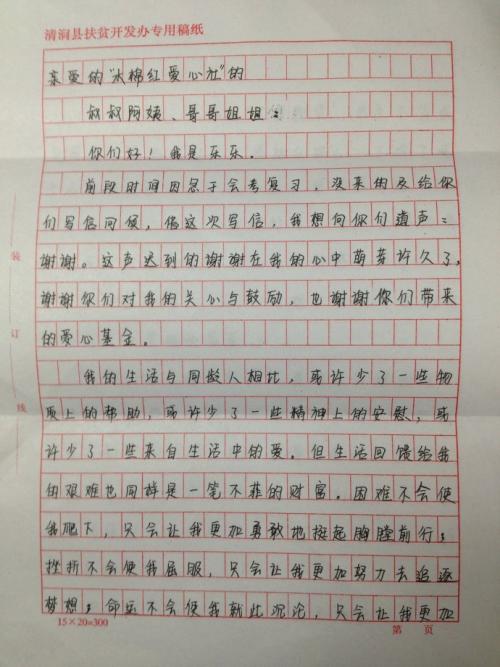 清涧县扶贫开发办专用稿纸
亲爱的“木棉红爱心社”的
叔叔阿姨、哥哥姐姐：
你们好！我是乐乐。
前段时间因忙于会考复习，没来得及给你
们写信问候，借这次写信，我想向你们道声：
谢谢。这声迟到的谢谢在我的心中萌芽许久了，
谢谢你们对我的关心与鼓励，也谢谢你们带来
的爱心基金。
我的生活与同龄人相比，或许少了一些物
质上的帮助，或许少了一些精神上的安慰，或
许少了一些来自生活中的爱。但生活回馈给我
的艰难也同样是一笔不菲的财富。困难不会使
我爬下，只会让我更加勇敢地挺起胸膛前行；
挫折不会使我屈服，只会让我更加努力去追逐
梦想；命运不会使我就此沉沦，只会让我更加
装
订
线
15×20=300
第 页